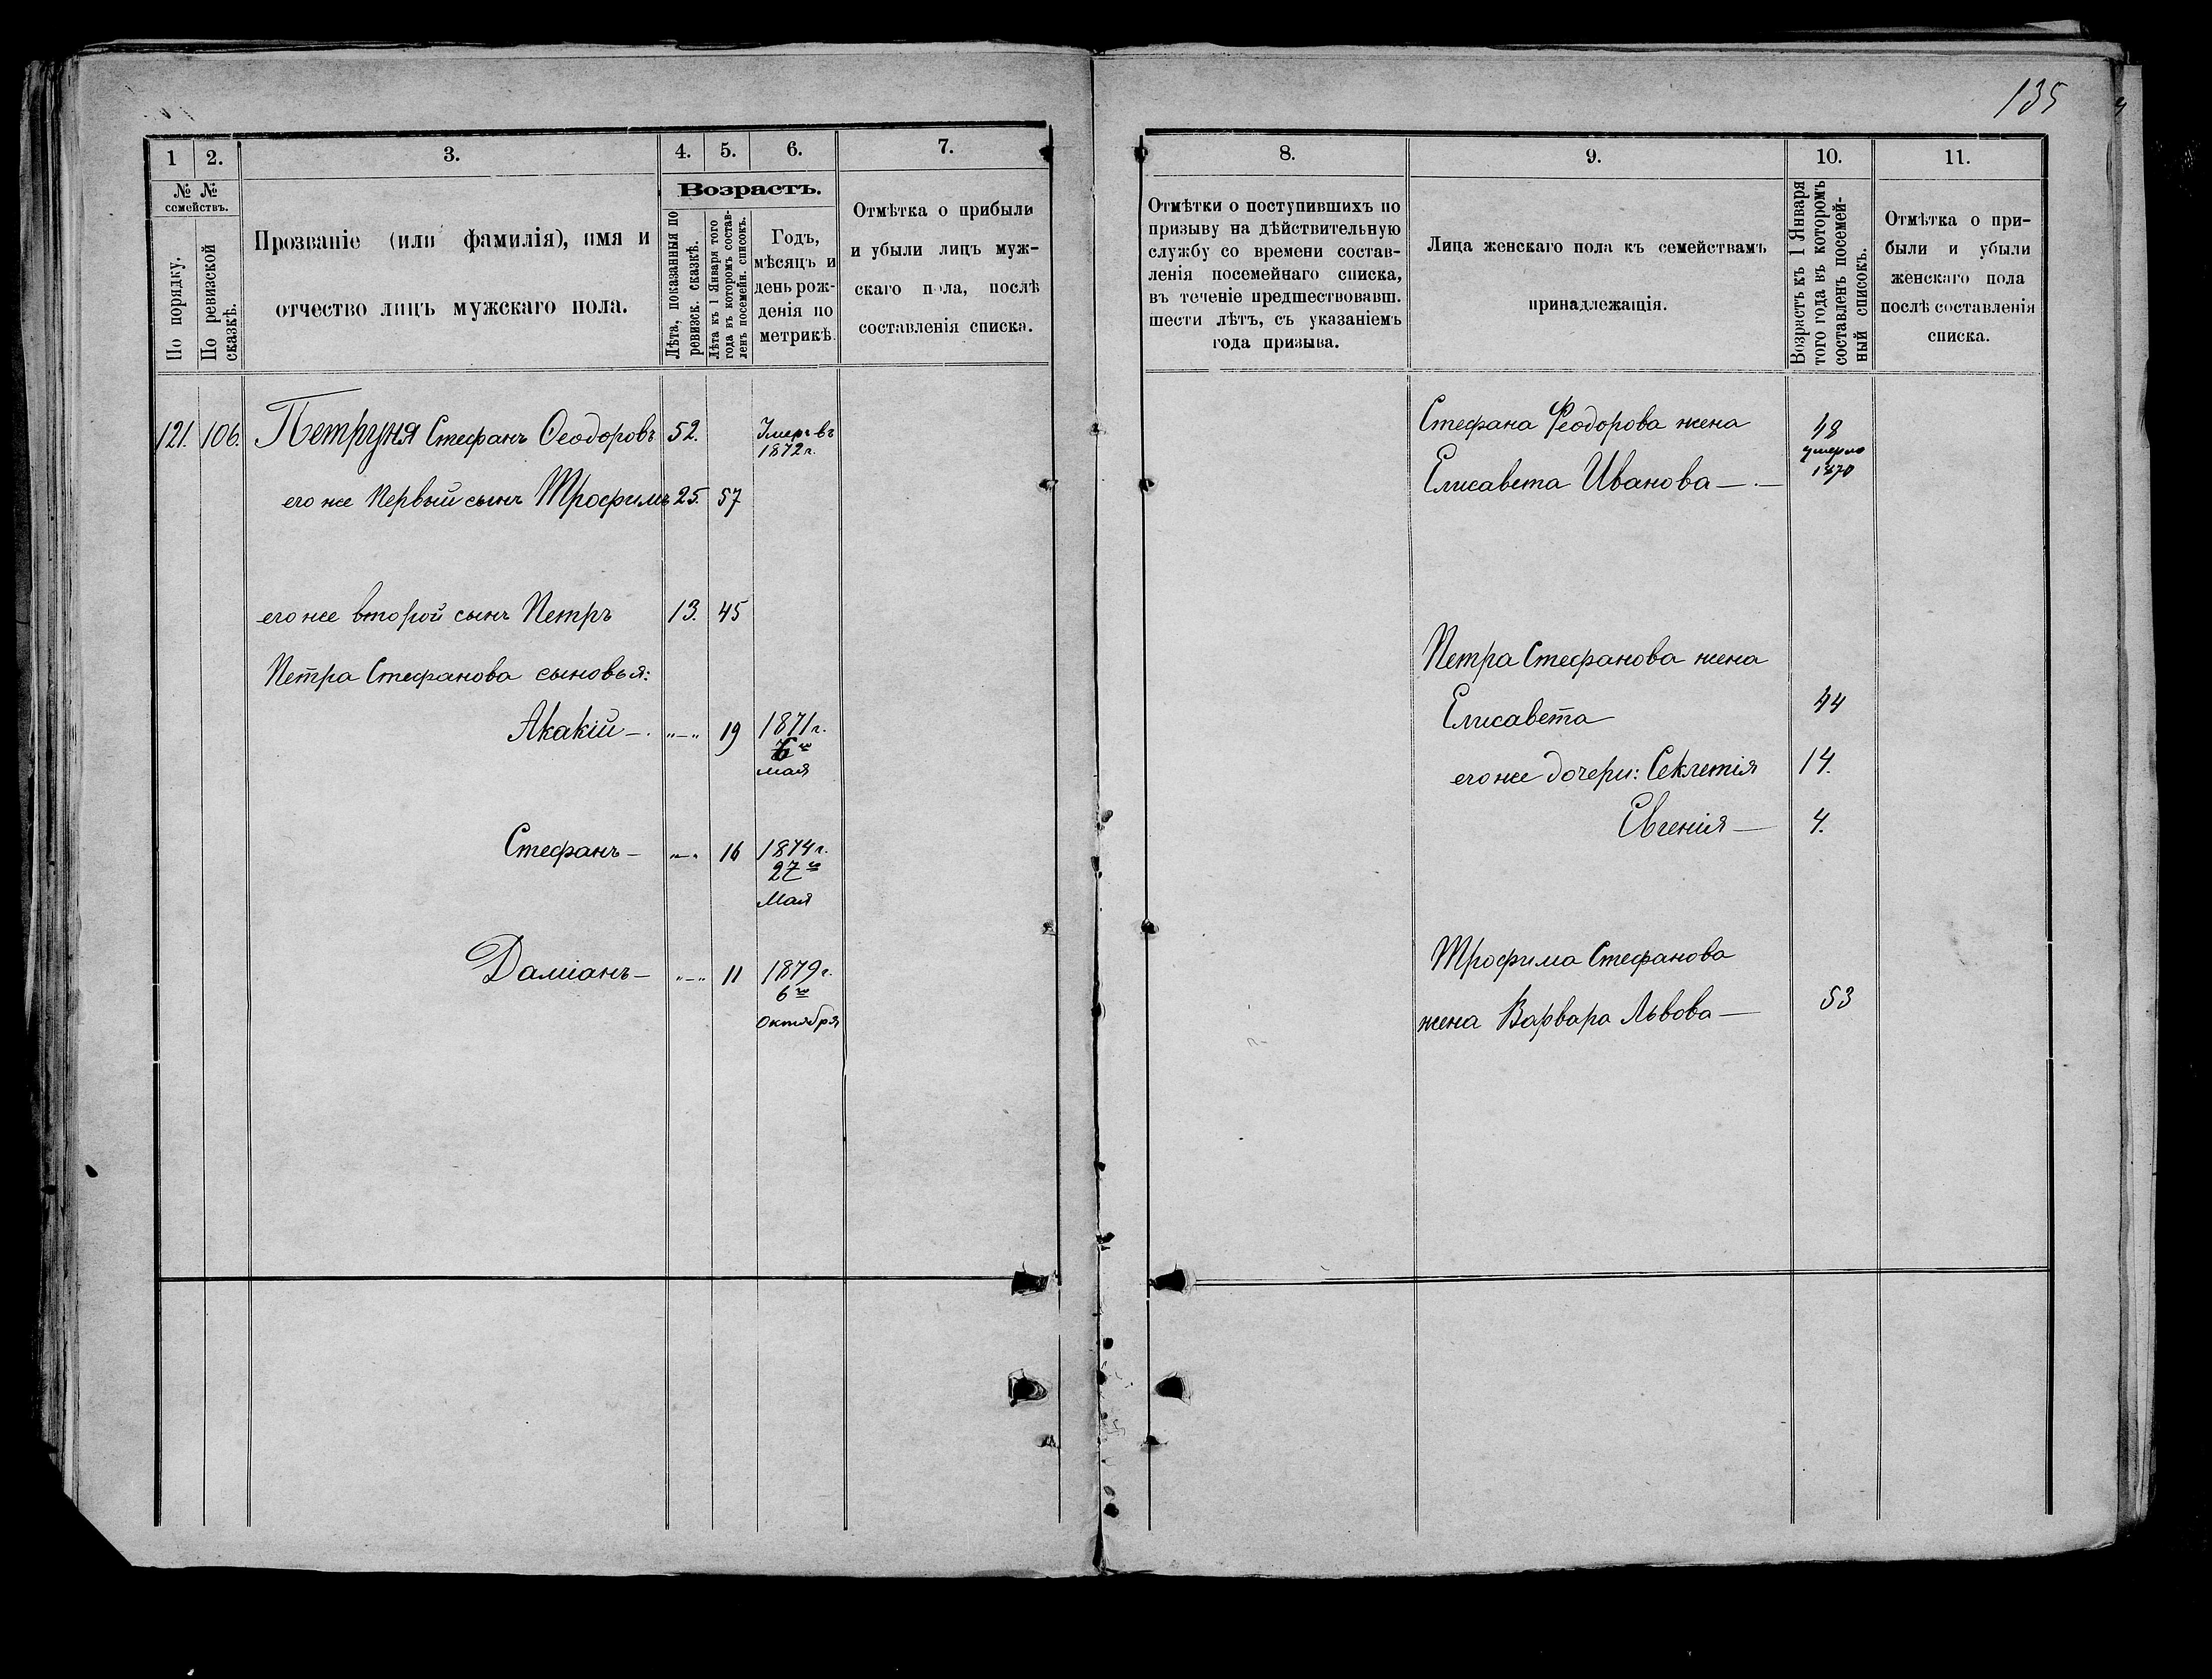 135
1
2.
3.
4.
5.
6.
7.
№ №
семействъ.
По порядку.
По ревизской
сказкѣ.
Прозваніе (или фамилія), имя и
отчество лицъ мужскаго пола.
Возрастъ.
Лѣта, показанныя по
ревизск. сказкѣ.
Лѣта къ 1 Января того
года въ которомъ состав-
ленъ посемейн. списокъ.
Годъ,
мѣсяцъ и
день рож-
денія по
метрикѣ.
Отмѣтка о прибыли
и убыли лицъ муж-
скаго пола, послѣ
составленія списка.
121. 106. Петруня Стефанъ Ѳеодоровъ 52. Умеръ въ
1872 г.
его же Первый сынъ Трофимъ 25. 57
его же второй сынъ Петръ 13. 45
Петра Стефанова сыновья:
Акакій — „—„ 19 1871 г.
мая
Стефанъ — „—„ 16 1874 г.
27го
Мая
Даміанъ — „—„ 11 1879 г.
6го
октября
8.
9.
10.
11.
Отмѣтки о поступившихъ по
призыву на дѣйствительную
службу со времени состав-
ленія посемейнаго списка,
въ теченіе предшествовавш.
шести лѣтъ, съ указаніемъ
года призыва.
Лица женскаго пола къ семействамъ
принадлежащія.
Возрастъ къ 1 Января
того года въ которомъ
составленъ посемей-
ный списокъ.
Отмѣтка о при-
были и убыли
женскаго пола
послѣ составленія
списка.
Стефана Феодорова жена 48
умерла
Елисавета Иванова — 1870
Петра Стефанова жена
Елисавета 44
его же дочери: Секлетія 14.
Евгенія — 4.
Трофима Стефанова
жена Варвара Львова — 53